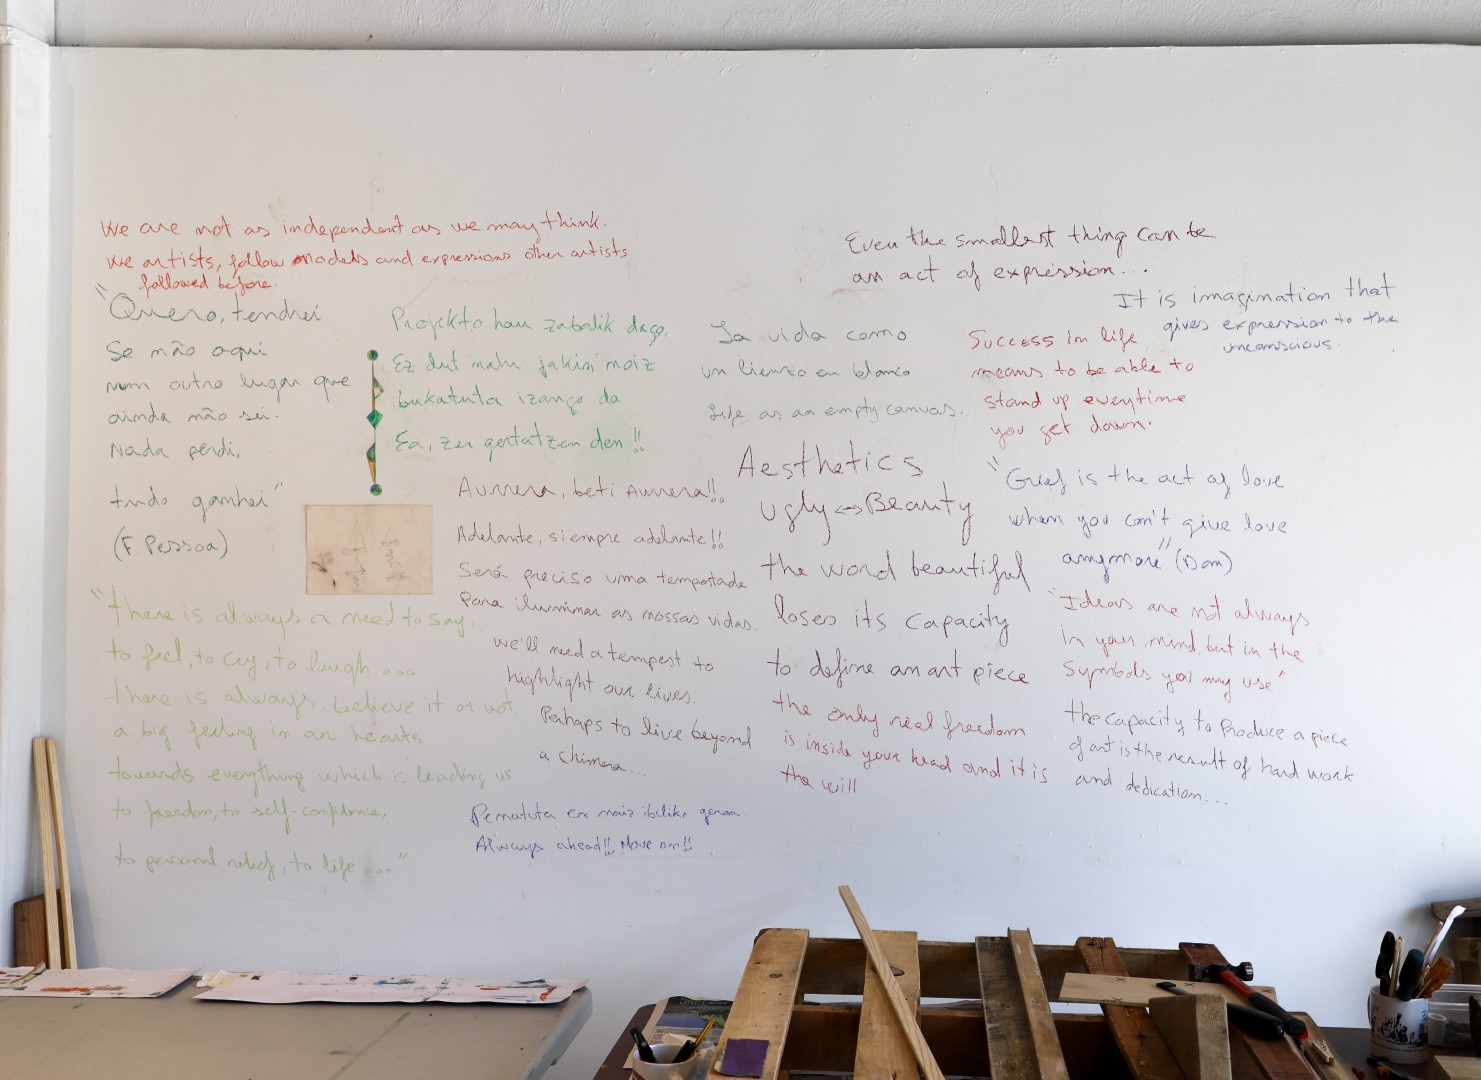 We are not as independent as we may think.
We artists, follow models and expressions other artists
followed before.
"Quero, tendrei
Se não aqui
num outro lugar que
ainda não sei.
Nada perdi,
tudo ganhei"
(F. Pessoa)
"there is always a need to say,
to feel, to cry, to laugh ...
there is always, believe it or not,
a big feeling in our hearts
towards everything which is leading us
to freedom, to self-confidence,
to personal relief, to life ..."
Projekto hau zabalik dago,
Ez dut nahi jakin noiz
bukatuta izango da
Ea, zer gertatzen den!!
Aurrera, beti Aurrera!!
Adelante, siempre adelante!!
Será preciso uma tempestade
Para iluminar as nossas vidas.
We'll need a tempest to
highlight our lives.
Perhaps to live beyond
a chimera...
noiz ibiliko
Always ahead!! Move on!!
La vida como
un lienzo en blanco
Life as an empty canvas.
Aesthetics
Ugly ↔ Beauty
the word beautiful
loses its capacity
to define an art piece
the only real freedom
is inside your head and it is
the will
Even the smallest thing can be
an act of expression...
It is imagination that
gives expression to the
unconscious.
Success in life
means to be able to
stand up everytime
you get down.
"Grief is the act of love
when you can't give love
anymore" (Dom)
"Ideas are not always
in your mind, but in the
Symbols you may use"
the capacity to Produce a piece
of art is the result of hard work
and dedication...